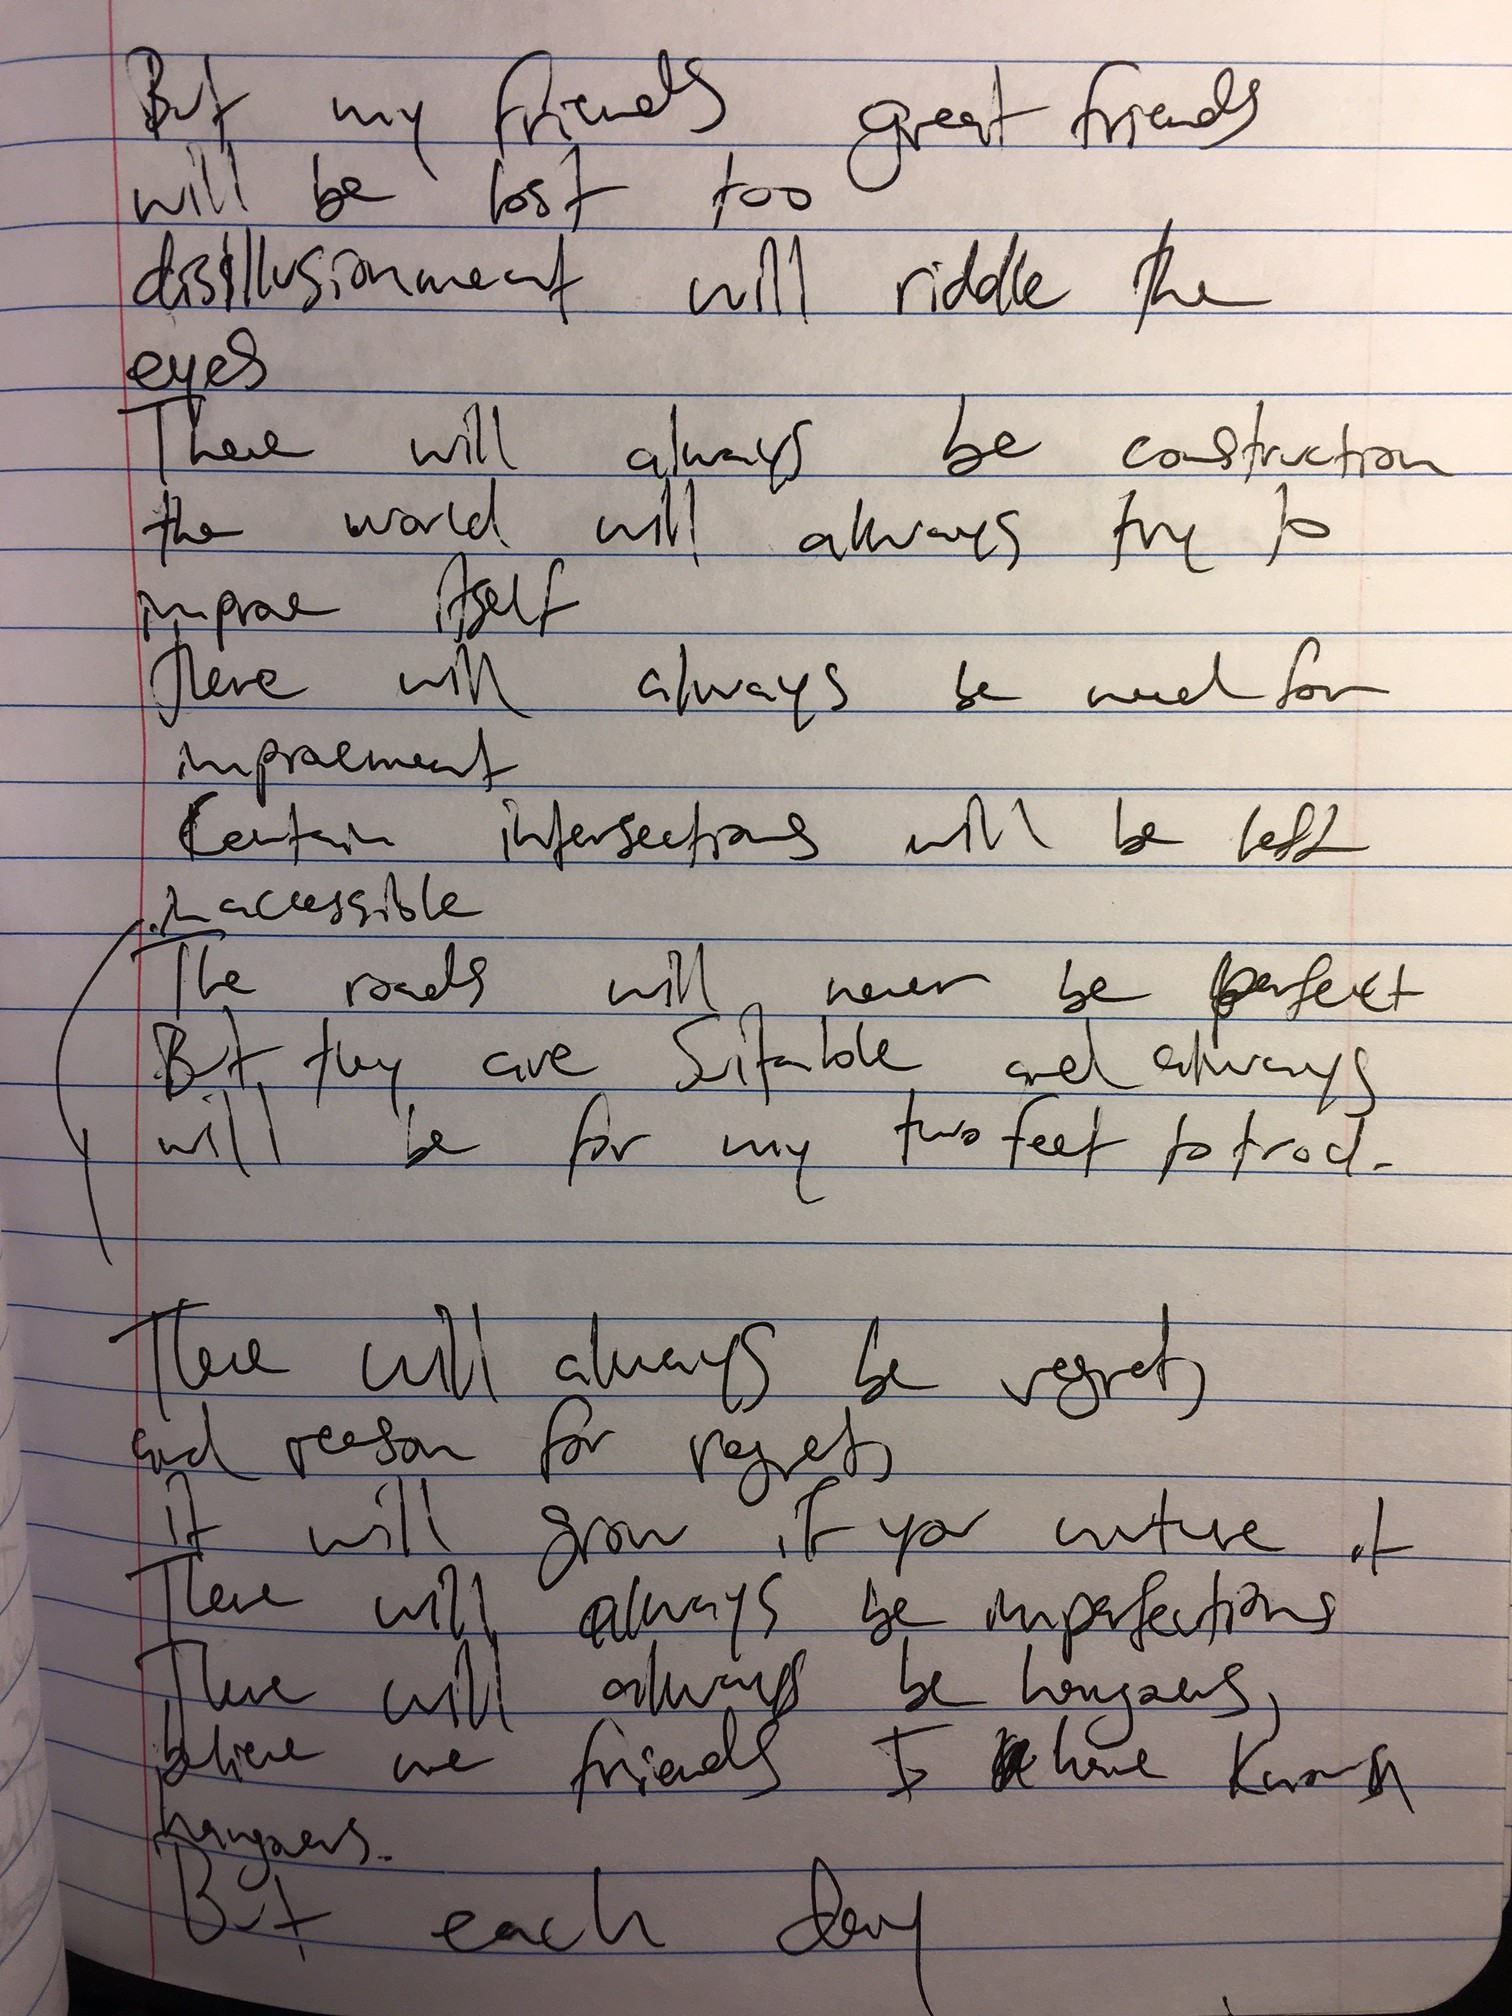 But my friends great friends
will be lost too
disillusionment will riddle the
eyes
There will always be construction
the world will always try to
improve itself
There will always be need for
improvement
Certain intersections will be left
inaccessible
The roads will never be perfect
But they are suitable and always
will be for my two feet to trod.
There will always be regrets
and reason for regrets
it will grow if you nuture it
There will always be imperfections
There will always be hangovers,
believe me friends I have known
hangovers.
But each day